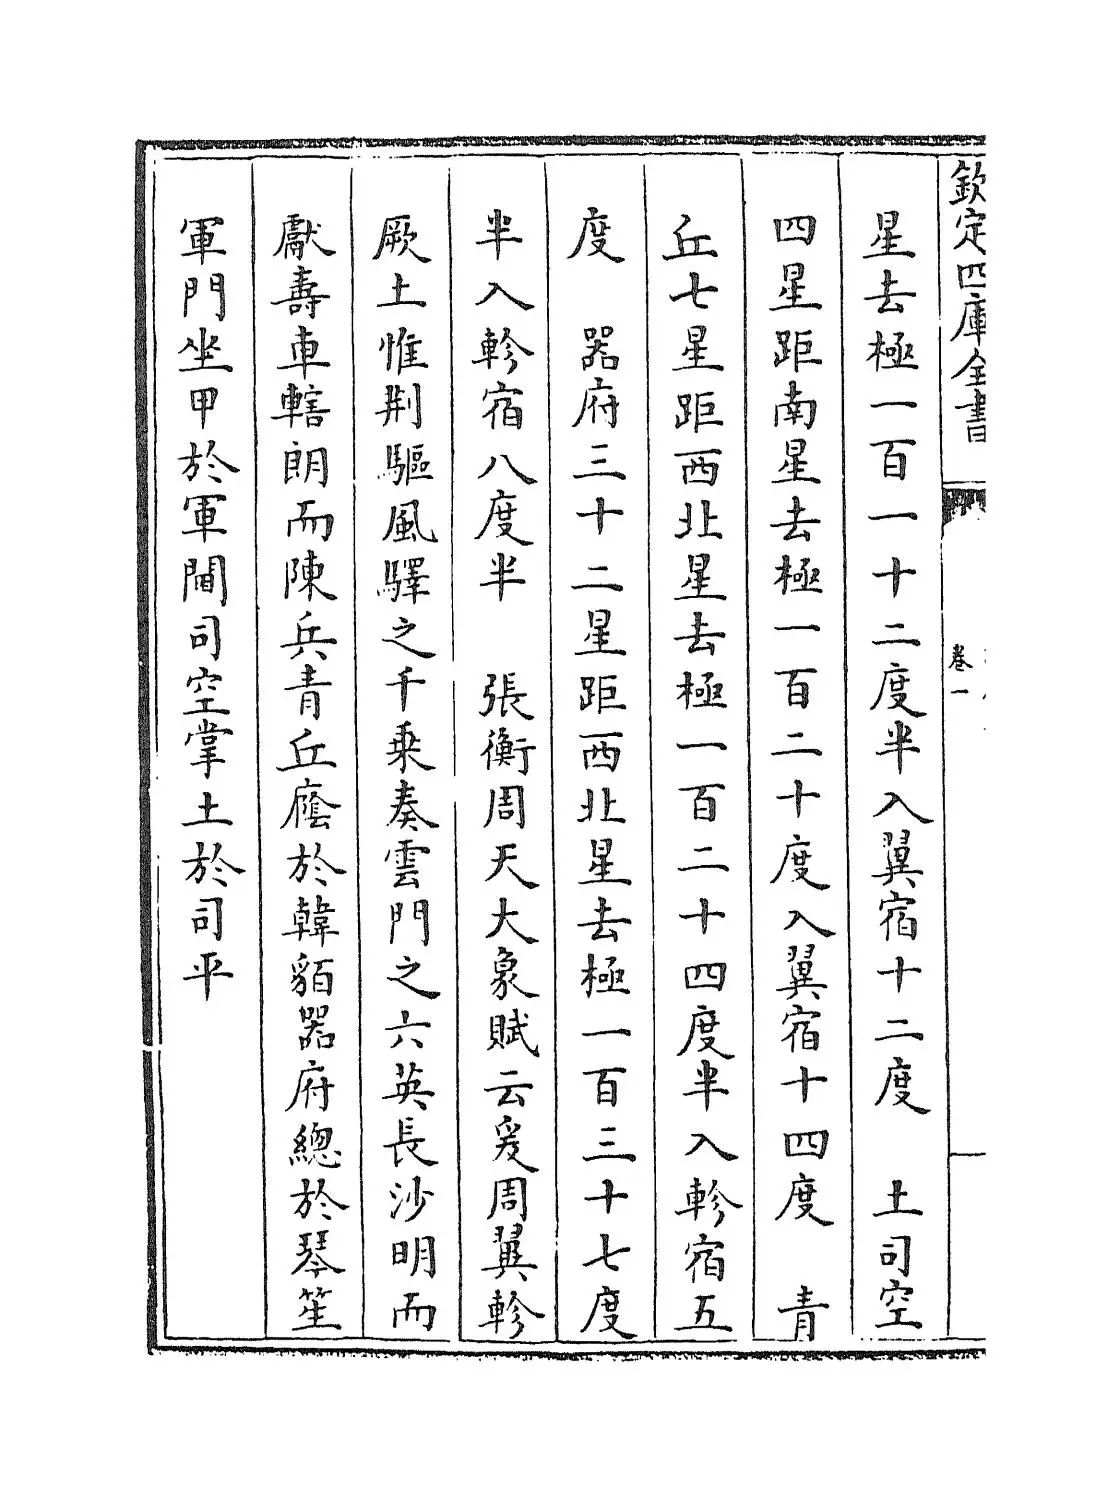 欽定四庫全書
卷一
星去極一百一十二度半入翼宿十二度　土司空
四星距南星去極一百二十度入翼宿十四度　青
丘七星距西北星去極一百二十四度半入軫宿五
度　器府三十二星距西北星去極一百三十七度
半入軫宿八度半　張衡周天大象賦云爰周翼軫
厥土惟荆驅風驛之千乗奏雲門之六英長沙明而
獻壽車轄朗而陳兵青丘廕於韓貊器府總於琴笙
軍門坐甲於軍閫司空掌土於司平